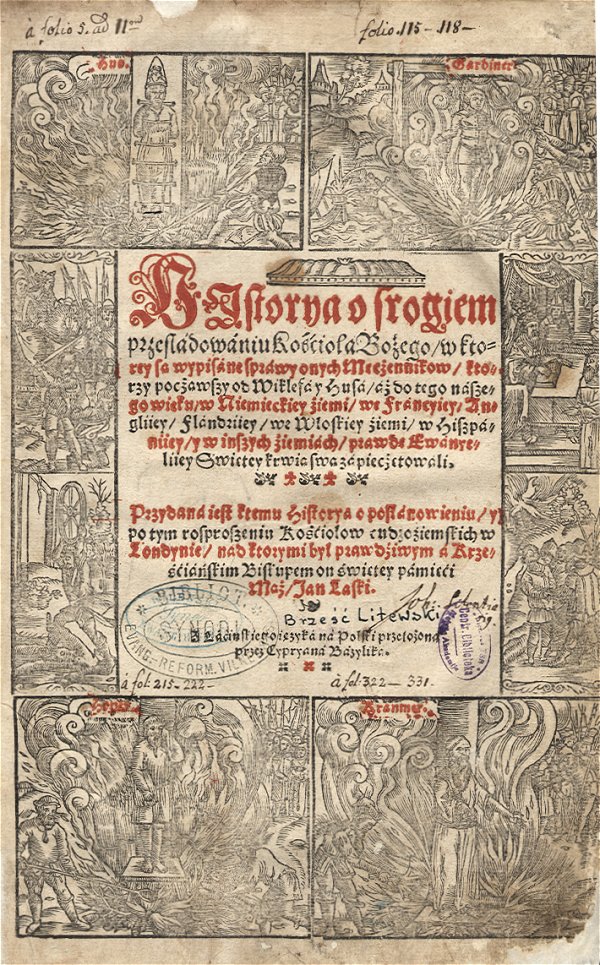 à folio 5. ad 11
folio. 115 - 118 -
Hus.
Gardiner
HIstorya o srogiem
prześladowániu Kościoła Bożego / w kto-
rey są wypisáne spráwy onych Męczennikow / kto-
rzy począwszy od Wiklefá y Husá / áż do tego násze-
go wieku / w Niemieckiey źiemi / we Fráncyiey / An-
gliiey / Flándriiey / we Włoskiey źiemi / w Hiszpá-
niiey / y w inszych źiemiách / prawdę Ewánye-
liiey Swiętey krwią swą zápieczętowáli.
Przydána iest ktemu Historya o postánowieniu / y
po tym rosproszeniu Kościołow cudzoźiemskich w
Londynie / nád ktorymi był prawdźiwym á Krze-
śćiáńskim Biskupem on świętey pámięci
Mąż / Jan Láski.
Brześć Litewski
Z Láćińskiego ięzyká ná Polski przełożona
przez Cypryaná Bázyliká.
BIBLIOT.
SYNODU
EWANG.-REFORM. WILEŃ
à fol: 215 - 222 -
à fol: 322 - 331.
Kranmer.